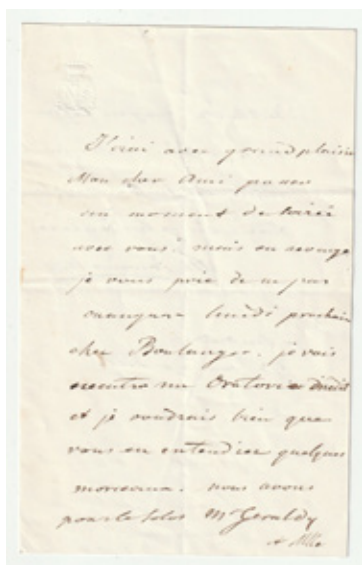 J'irai avec grand plaisir
Mon cher Ami passer
un moment de soirée
avec vous. mais en revange
je vous prie de ne pas
manquer lundi prochain
chez Boulanger. je vais
un Oratorio
et je voudrais bien que
vous en entendiez quelques
morceaux. nous avons
pour le solos Mr Geraldy
et Mlle